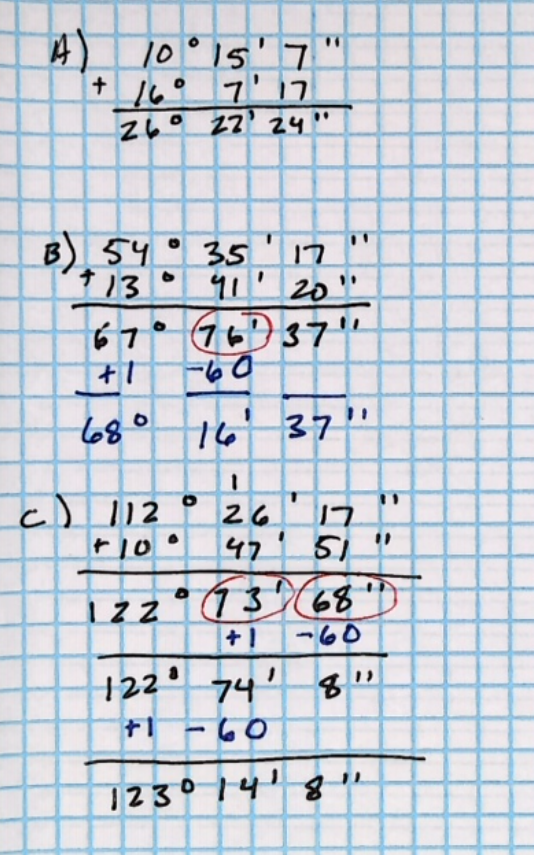 A) 10° 15' 7"
+ 16° 7' 17
26° 22' 24"
B) 54° 35' 17"
+ 13° 41' 20"
67° 76' 37"
+1 -60
68° 16' 37"
1
C) 112° 26' 17"
+ 10° 47' 51"
122° 73' 68"
+1 -60
122° 74' 8"
+1 -60
123° 14' 8"